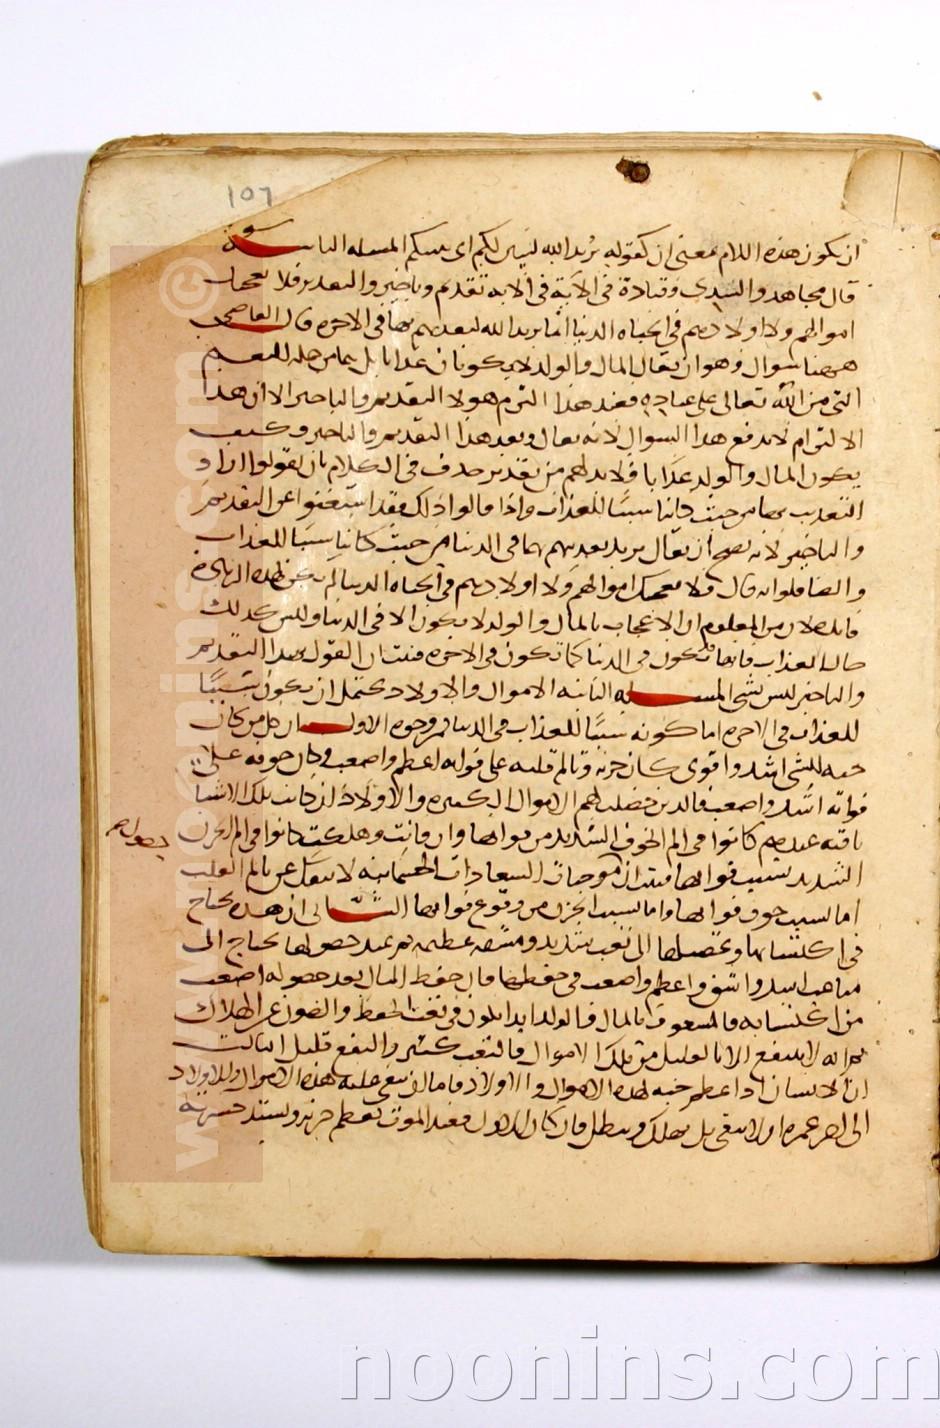 107
ان يكون هذه اللام بمعنى ان كقوله يريد الله ليبين لكم اى يبين لكم المسله الثانية
قال مجاهد والسدي وقتادة في الآية في الآية تقديم وتاخير والتقدير فلا تعجبك
اموالهم ولا اولادهم في الحياه الدنيا انما يريد الله ليعذبهم بها في الاخرة وقال القاضي
ههنا سوال وهو ان يقال المال والولد لا يكونان عذابا بل هما من جمله النعم
التى من الله تعالى على عباده فعند هذا التزم هولا التقديم والتاخير الا ان هذا
الالتزام لا يدفع هذا السوال لانه يقال وبعد هذا التقديم والتاخير وكيف
يكون المال والولد عذابا فلا بد لهم من تقدير حذف في الكلام بان يقولوا اراد
التعذيب بهما من حيث كانا سببا للعذاب واذا قالوا ذلك فقد استغنوا عن التقديم
والتاخير لانه يصح ان يقال يريد يعذبهم بهما في الدنيا من حيث كانا سببا للعذاب
وايضا فلو انه قال فلا تعجبك اموالهم ولا اولادهم في الحياه الدنيا لم يكن لهذه الزيادة
فايده لان من المعلوم ان الاعجاب بالمال والولد لا يكون الا في الدنيا وليس كذلك
حال العذاب فانها قد تكون في الدنيا كما تكون في الاخره فثبت ان القول بهذا التقديم
والتاخير ليس بشى المسله الثالثه الاموال والاولاد يحتمل ان يكون سببا
للعذاب في الاخره اما كونه سببا للعذاب في الدنيا فمن وجوه الاول ان كل من كان
حبه للشى اشد واقوى كان حزنه وتالم قلبه على فواته اعظم واصعب وكان خوفه على
فواته اشد واصعب فالذين حصلت لهم الاموال الكثيره والاولاد ان كانت تلك الاشيا
باقيه عندهم كانوا في الم الخوف الشديد من فواتها وان فاتت وهلكت كانوا في الم الحزن
الشديد بسبب فواتها فثبت ان موجبات السعادات الجسمانيه لا ينفك عن تالم القلب
اما بسبب خوف فواتها واما بسبب الحزن من وقوع فواتها الثاني ان هذه يحتاج
في اكتسابها وتحصيلها الى تعب شديد ومشقه عظيمه ثم عند حصولها يحتاج الى
متاعب اشد واشق واعظم واصعب في حفظها فان حفظ المال بعد حصوله اصعب
من اكتسابه فالمشعوف بالمال والولد ابدا يكون في تعب الحفظ والصون عن الهلاك
ثم انه لا ينتفع الا بالقليل من تلك الاموال فالتعب كثير والنفع قليل الثالث
ان الانسان اذا عظم حبه لهذه الاموال والاولاد فاما ان تبقى عليه هذه الاموال والاولاد
الى اخر عمره او لا تبقى بل تهلك وتبطل فان كان الاول فعند الموت يعظم حزنه وتشتد حسرته
noonins.com
www.noonins.com ©